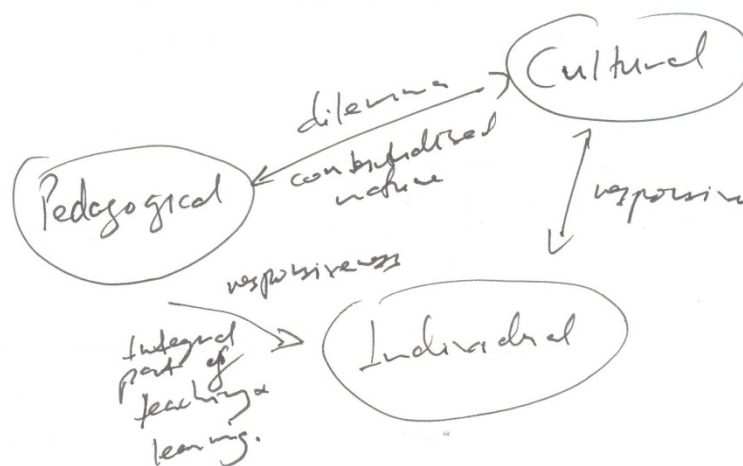 Cultural
dilemma
contextualised
nature
Pedagogical
responsive
responsiveness
Individual
Integral
part of
teaching &
learning.